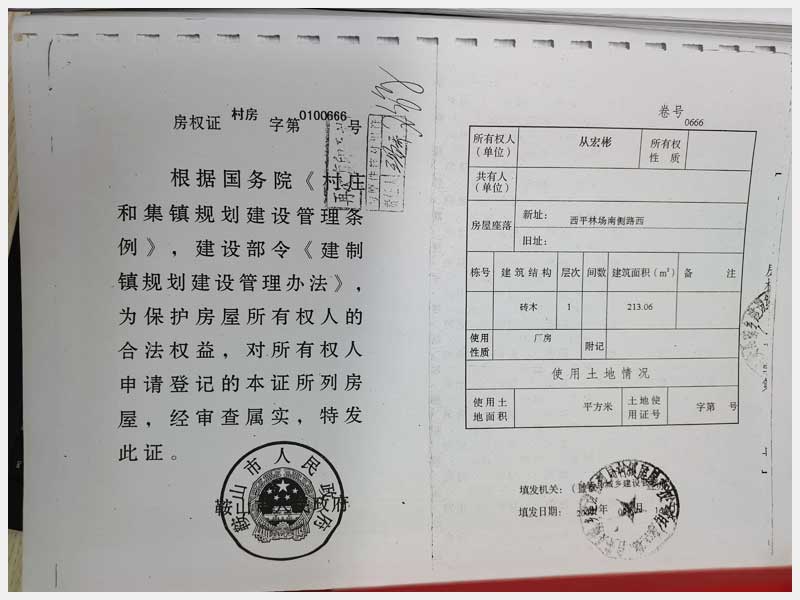 房权证 村房 字第 0100666 号
根据国务院《村庄
和集镇规划建设管理条
例》，建设部令《建制
镇规划建设管理办法》，
为保护房屋所有权人的
合法权益，对所有权人
申请登记的本证所列房
屋，经审查属实，特发
此证。
鞍山市人民政府
鞍山市人民政府
卷号 0666
所有权人（单位） 从宏彬 所有权性质
共有人（单位）
房屋座落 新址： 西平林场南侧路西
旧址：
栋号 建筑结构 层次 间数 建筑面积（m²） 备 注
砖木 1 213.06
使用性质 厂房 附记
使用土地情况
使用土地面积 平方米 土地使用证号 字第 号
填发机关：
城乡建设
填发日期： 年 月